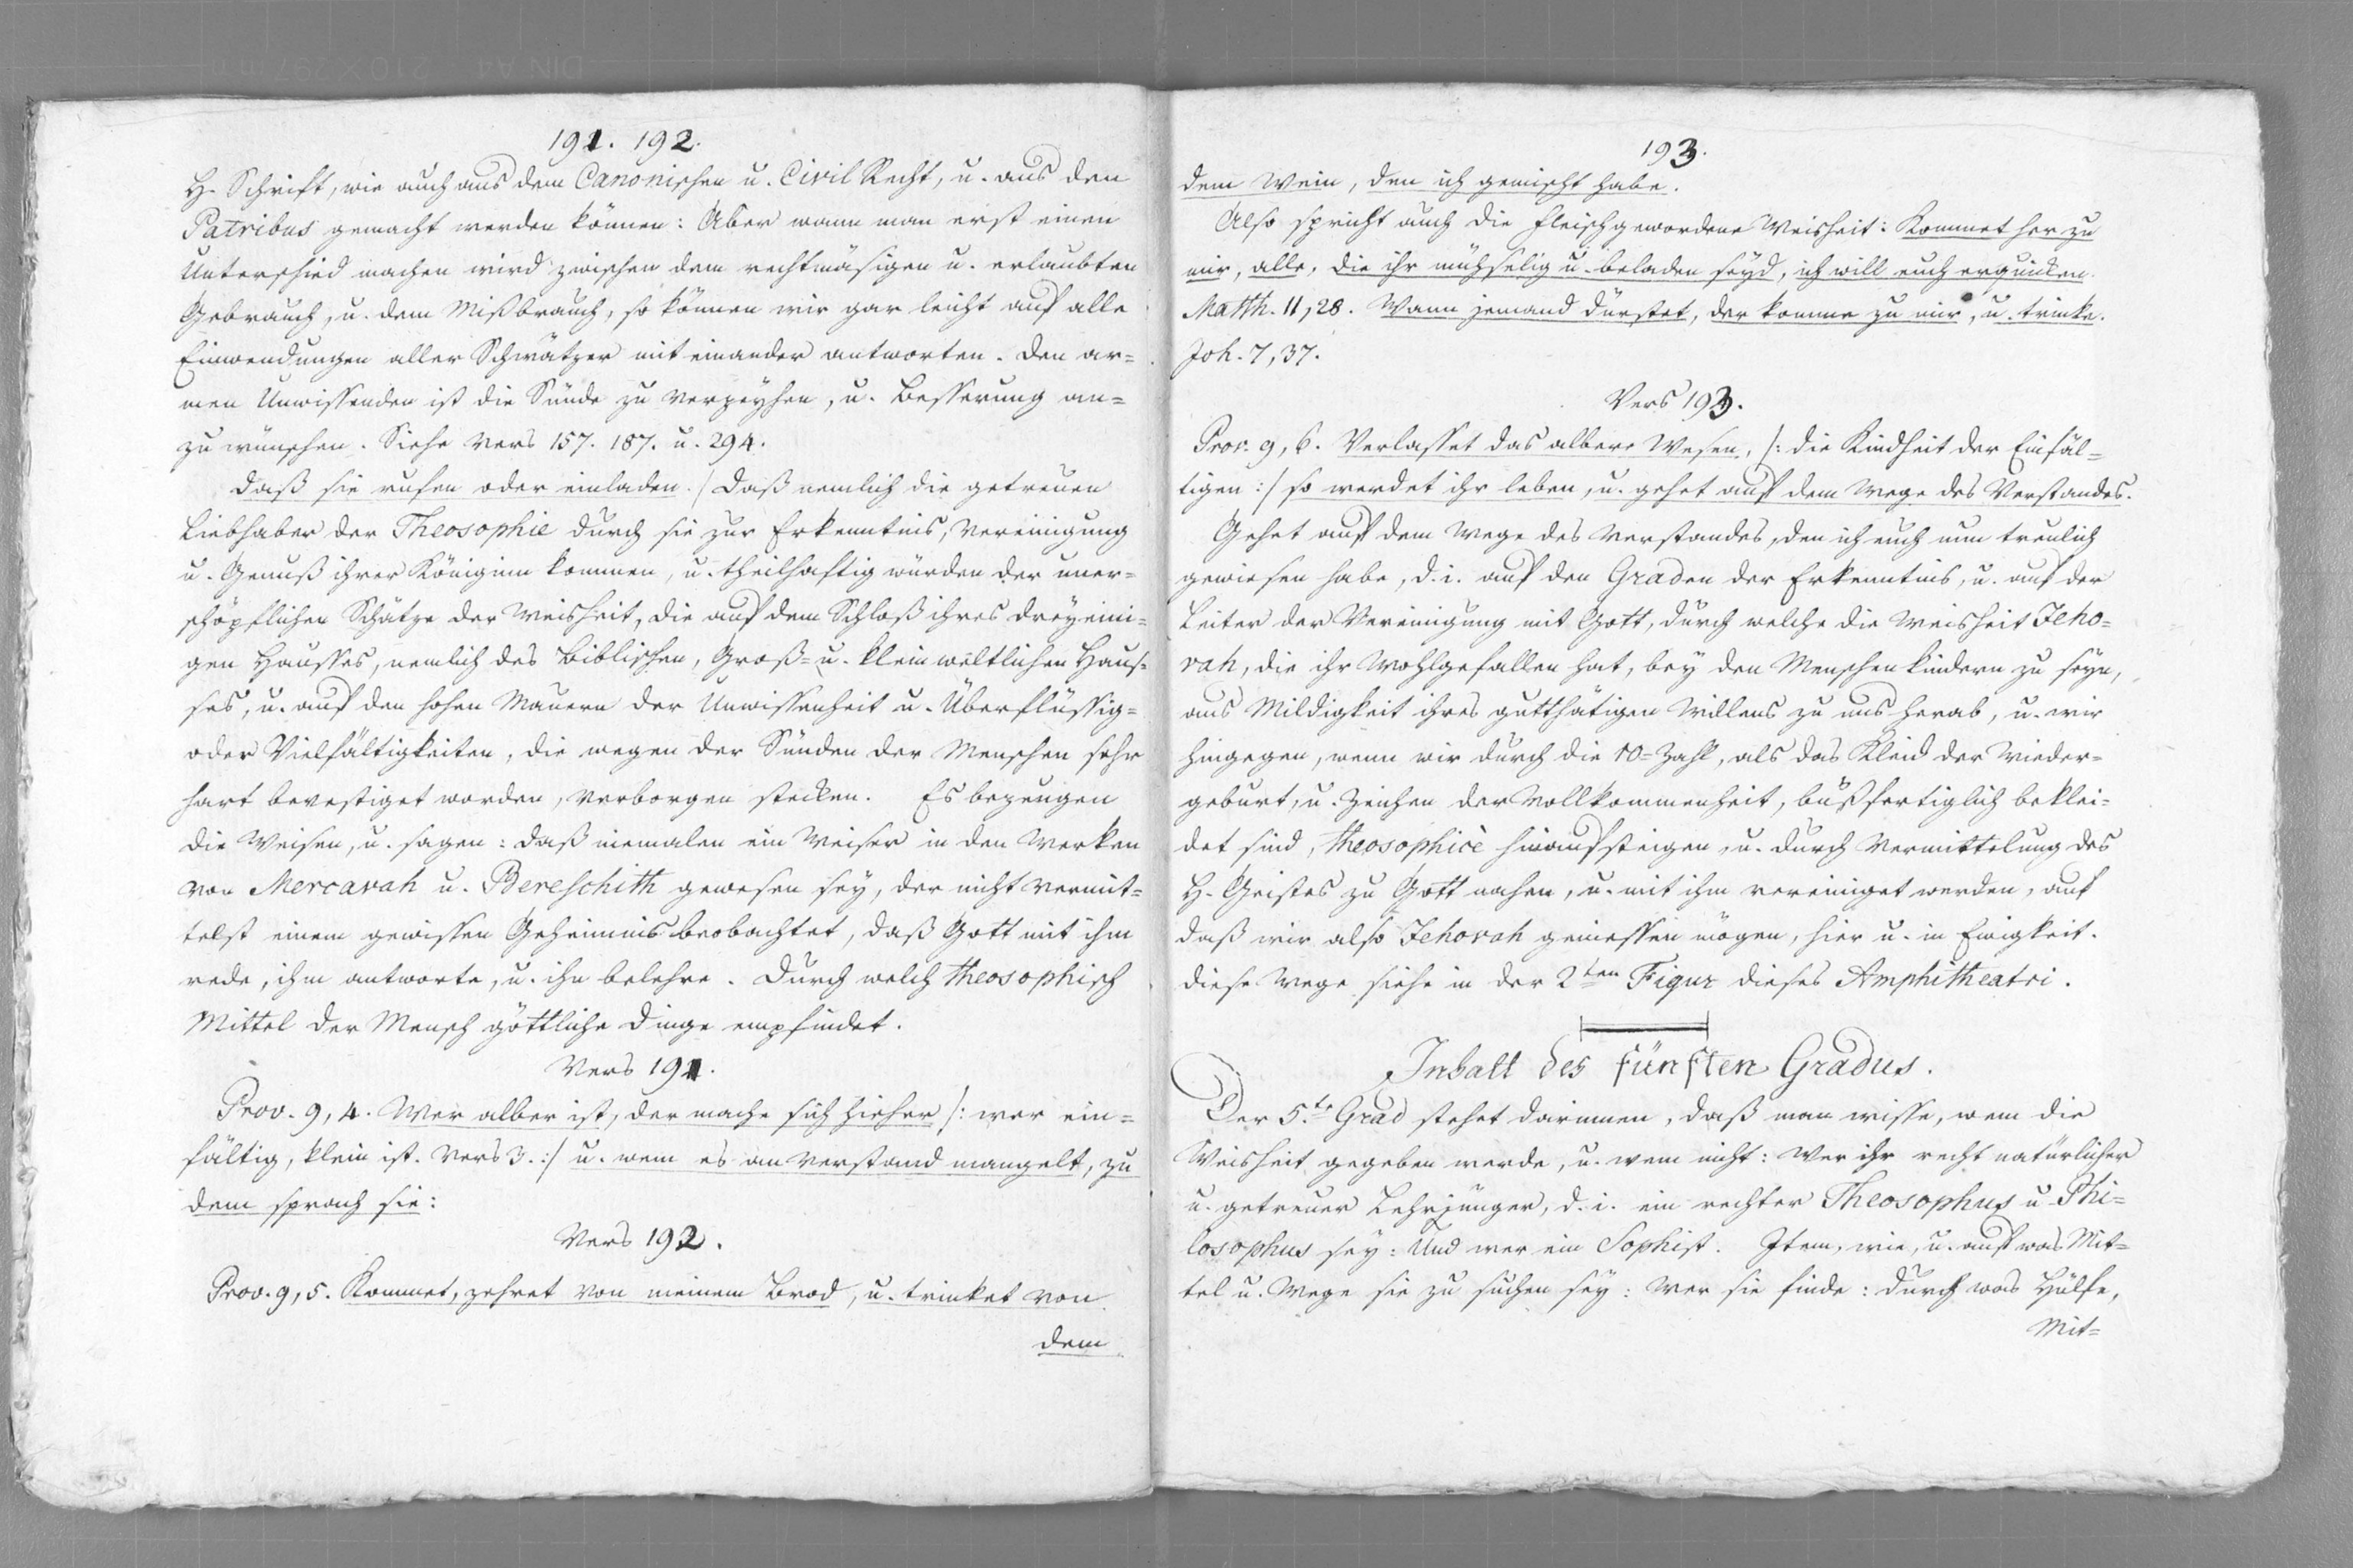 191. 192.
H. Schrift, wie auch aus dem Canonischen u. Civil Recht, u. aus den
Patribus gemacht werden können: Aber wann man erst einen
Unterschied machen wird zwischen dem rechtmäsigen u. erlaubten
Gebrauch, u. dem Mißbrauch, so können wir gar leicht auf alle
Einwendungen aller Schwätzer mit einander antworten. Den ar=
men Unwissenden ist die Sünde zu verzeyhen, u. Besserung an=
zu wünschen. Siehe Vers 157. 187. u. 294.
Daß sie rufen oder einladen. / Daß nemlich die getreuen
Liebhaber der Theosophie durch sie zur Erkenntnis, Vereinigung
u. Genuß ihrer Königinn kommen, u. theilhaftig würden der uner=
schöpflichen Schätze der Weisheit, die auf dem Schloß ihres dreyeini=
gen Hausses, nemlich des Biblischen, Groß= u. kleinweltlichen Haus=
ses, u. auf den hohen Mauern der Unwissenheit u. Überflüssig=
oder Vielfältigkeiten, die wegen der Sünden der Menschen sehr
hart bevestiget worden, verborgen stecken. Es bezeugen
die Weisen, u. sagen: daß niemalen ein Weiser in den Werken
von Mercavah u. Bereschith gewesen sey, der nicht vermit=
telst einem gewissen Geheimnis beobachtet, daß Gott mit ihm
rede, ihm antworte, u. ihn belehre. Durch welch theosophisch
Mittel der Mensch göttliche Dinge empfindet.
Vers 191.
Prov. 9, 4. Wer alber ist, der mache sich hieher /: wer ein=
fältig, klein ist. Vers 3. :/ u. wem es an Verstand mangelt, zu
dem sprach sie:
Vers 192.
Prov. 9, 5. Kommet, zehret von meinem Brod, u. trinket von
dem
193.
dem Wein, den ich gemischt habe.
Also spricht auch die fleischgewordene Weisheit: Kommet her zu
mir, alle, die ihr mühselig u. beladen seyd, ich will euch erquicken.
Matth. 11, 28. Wann jemand dürstet, der komme zu mir, u. trinke.
Joh. 7, 37.
Vers 193.
Prov. 9, 6. Verlasset das albere Wesen, /: die Kindheit der Einfäl=
tigen :/ so werdet ihr leben, u. gehet auf dem Wege des Verstandes.
Gehet auf dem Wege des Verstandes, den ich euch nun treulich
gewiesen habe, d. i. auf den Graden der Erkenntnis, u. auf der
Leiter der Vereinigung mit Gott, durch welche die Weisheit Jeho=
vah, die ihr Wohlgefallen hat, bey den Menschenkindern zu seyn,
aus Mildigkeit ihres gutthätigen Willens zu uns herab, u. wir
hingegen, wenn wir durch die 10=Zahl, als das Kleid der Wieder=
geburt, u. Zeichen der Vollkommenheit, bußfertiglich beklei=
det sind, theosophicè hinaufsteigen, u. durch Vermittelung des
H. Geistes zu Gott nahen, u. mit ihm vereiniget werden, auf
daß wir also Jehovah geniessen mögen, hier u. in Ewigkeit.
Diese Wege siehe in der 2ten Figur dieses Amphitheatri.
Inhalt des fünften Gradus.
Der 5.te Grad stehet darinnen, daß man wisse, wem die
Weisheit gegeben werde, u. wem nicht: Wer ihr recht natürlicher
u. getreuer Lehrjünger, d. i. ein rechter Theosophus u. Phi=
losophus sey: Und wer ein Sophist. Item, wie, u. auf was Mit=
tel u. Wege sie zu suchen sey: Wer sie finde: Durch was Hülfe,
Mit=